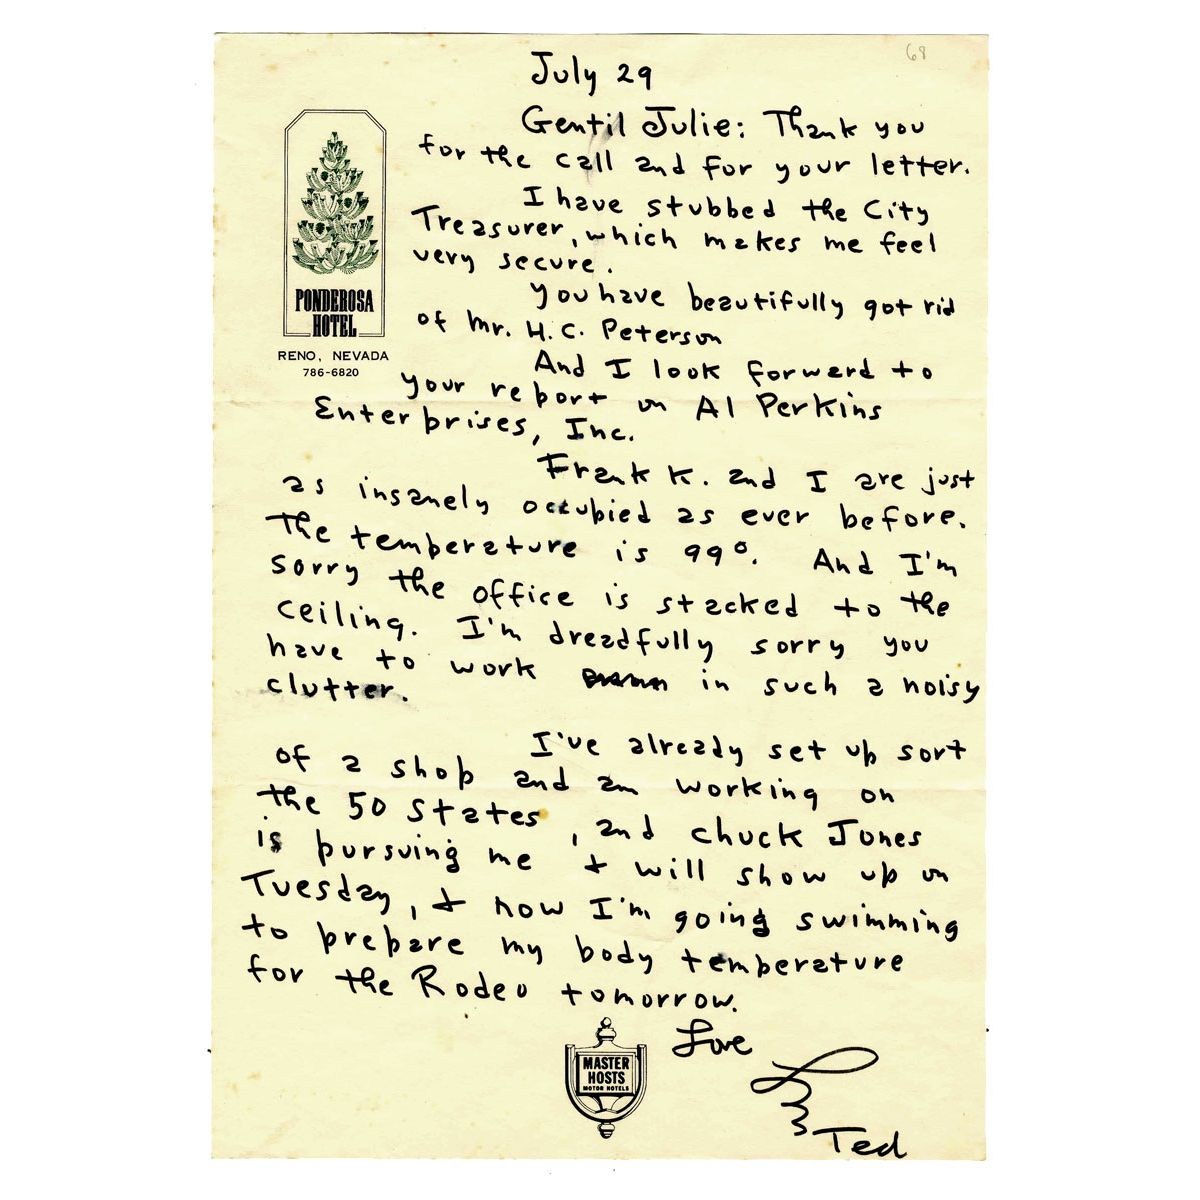 68
July 29
Gentil Julie: Thank you
for the call and for your letter.
I have stubbed the City
Treasurer, which makes me feel
very secure.
You have beautifully got rid
of Mr. H.C. Peterson
And I look forward to
your report on Al Perkins
Enterprises, Inc.
Frank K. and I are just
as insanely occupied as ever before.
The temperature is 99°. And I'm
sorry the office is stacked to the
ceiling. I'm dreadfully sorry you
have to work in such a noisy
clutter.
I've already set up sort
of a shop and am working on
the 50 States, and Chuck Jones
is pursuing me & will show up on
Tuesday, & now I'm going swimming
to prepare my body temperature
for the Rodeo tomorrow.
Love
Ted
PONDEROSA
HOTEL
RENO, NEVADA
786-6820
MASTER
HOSTS
MOTOR HOTELS